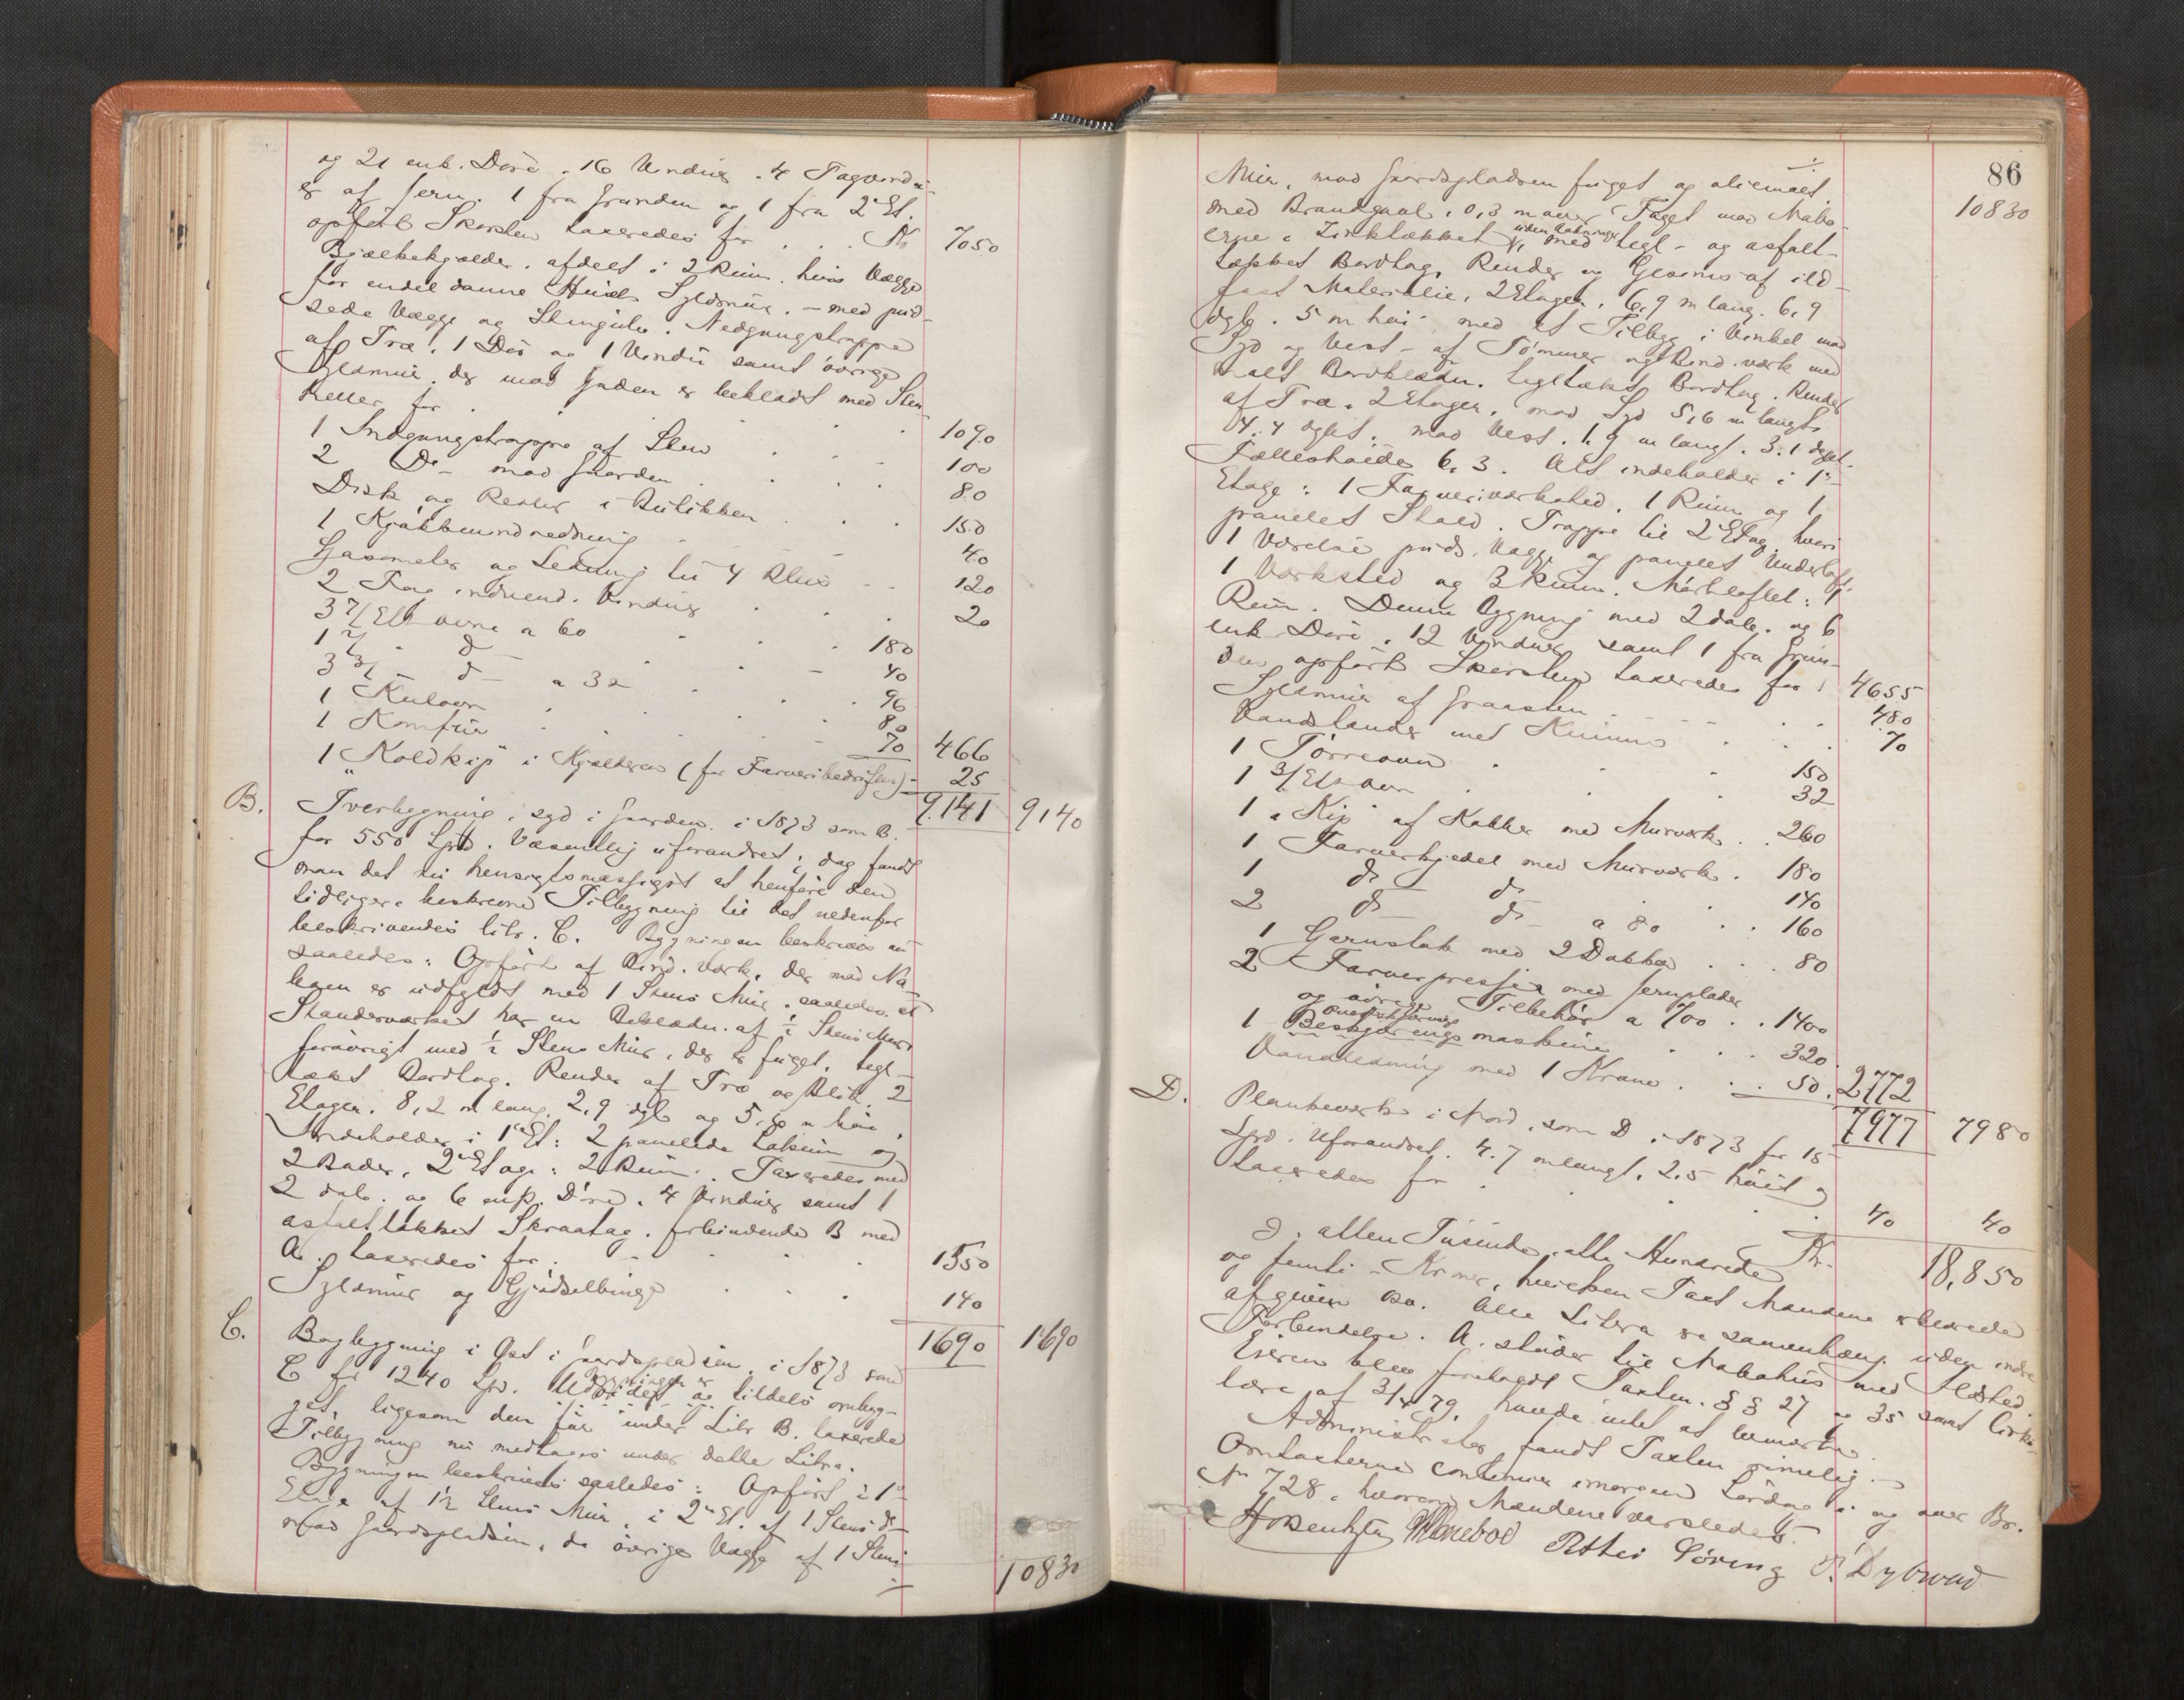 og 21 enk. Döre, 16 Vinduer, 4 Tagvindu-
er af Jern. 1 fra Grunden og 1 fra 2 Et.
opfört Skorsten taxeredes for . . . Kr 7050
Bjælkekjælder, afdelt i 2 Rum, hvis Vægge
for endel danne Husets Syldmur, - med pud-
sede Vægge og Stengulv. Nedgangstrappe
af Træ, 1 Dör og 1 Vindu samt övrige
Syldmur, der mod Gaden er beklædt med Sten-
heller for . . . 1090
1 Indgangstrappe af Sten . . . 100
2 Do - mod Gaarden . . . 80
Disk og Reoler i Butikken . . . 150
1 Kjökkenindredning . . . 40
Gasometer og Ledning til 4 Blus . . 120
2 Fag indvend. Vinduer . . . 20
3 2/Et. ovne a 60 . . . 180
1 2/ - d - . . . 40
3 3/ - d - a 32 . . . 96
1 Kulovn . . . 80
1 Komfur . . . 70 466
1 "Koldkip" i Kjælderen (for Farveribedriften) - 25
9,141 9140
B. Tverbygning, syd i Gaarden, i 1873 som B.
for 550 Spd. Væsentlig uforandret; dog fandt
man det nu hensigtsmæssigst at henföre den
tidligere beskrevne Tilbygning til det nedenfor
beskrivendes litr. C. Bygningen beskrives nu
saaledes: Opfört af Bind. værk, der mod Na-
boen er udfyldt med 1 Stens Mur, saaledes at
Standerværket har en Beklædn. af ½ Stens Mur
forövrigt med ½ Stens Mur, der er fuget, tegl-
tækt Bordtag. Render af Træ og Blik. 2
Etager. 8,2 m lang, 2,9 dyb og 5,6 m höi.
Indeholder i 1ste Et: 2 panelede Lokum og
2 Boder, 2 Etage: 2 Rum. Taxeredes med
2 dob. og 6 enk. Döre, 4 Vinduer samt 1
asfalttækket Skraatag, forbindende B med
A. taxeredes for . . . 1550
Syldmur og Gjödselbinge . . . 140
1690 1690
C. Bagbygning i Öst i Gaardspladsen, i 1873 som
C for 1240 Spd. Bygningen er
Udvidet og tildels ombyg-
get, ligesom den för under Litr B. taxerede
Tilbygning nu medtages under dette Litra.
Bygningen beskrives saaledes: Opfört i 1ste
Etage af 1½ Stens Mur, i 2 Et. af 1 Stens do
mod Gaardspladsen, de övrige Vægge af 1 Stens
10830
86
10830
Mur, mod Gaardspladsen fuget og oliemalt,
med Brandgavl, 0,3 m over Taget mod Nabo-
erne, Zinktækket uden Aabninger, med tegl- og asfalt-
tækket Bordtag, Render og Gesims af ild-
fast Materiale, 2 Etager, 6,9 m lang, 6,9
dyb, 5 m höi, med et Tilbygg i Vinkel mod
Syd og Vest - af Tömmer og Bind. værk med
malt Bordklædn. tegltækt Bordtag. Render
af Træ, 2 Etager, mod Syd 5,6 m langt
4,4 dybt, mod Vest, 1,9 m langt, 3,1 dybt.
Fælleshöide 6,3. Alt indeholder i 1ste
Etage: 1 Farveriværksted, 1 Rum og 1
panelet Stald. Trappe til 2 Etag. hvori
1 Værelse puds. Vægge og panelet Underloft,
1 Værksted og 3 Rum. Mörkloftet: 1
Rum. Denne Bygning med 2 dob. og 6
enk. Döre, 12 Vinduer samt 1 fra Grun-
den opfört Skorsten taxeredes for 4655
Syldmur af Graasten . . . 480
Vandslander med Kumme . . . 70
1 Törreovn . . . 150
1 3/Et. ovn . . . 32
1 "Kip" af Kobber med Murværk . . 260
1 Farverkjedel med Murværk . 180
1 d - d - . . . 140
2 d - d - a 80 . . 160
1 Garnstok med 2 Dokker . . . 80
2 Farverpresser med Jernplader
og övrige Tilbehör a 700 . . 1400
1 Overskjærings
Beskjærings maskine . . . 320
Vandledning med 1 Krane . . . 50. 2772
7977 7980
D. Plankeværk i Nord, som D i 1873 for 15
Spd. Uforandret. 4,7 m langt, 2,5 höit og
taxeredes for . . . 40 40
Kr. 18,850
d. atten Tusinde, otte Hundrede
og femti - Kroner, hvilken Taxt Mændene erklærede
afgiven bo. Alle Litra ere sammenhæng. uden indre
Forbindelse. A. stöder til Nabohus med Ildsted.
Eieren blev forelagt Taxten. § § 27 og 35 samt Cirku-
lære af 3/4 79, havde intet at bemærke.
Administrator fandt Taxten rimelig. -
Omtaxterne continuer imorgen Lördag i og over Br.
No 728, hvorom Mændene varsledes.
Petter Söring P. Dybwad